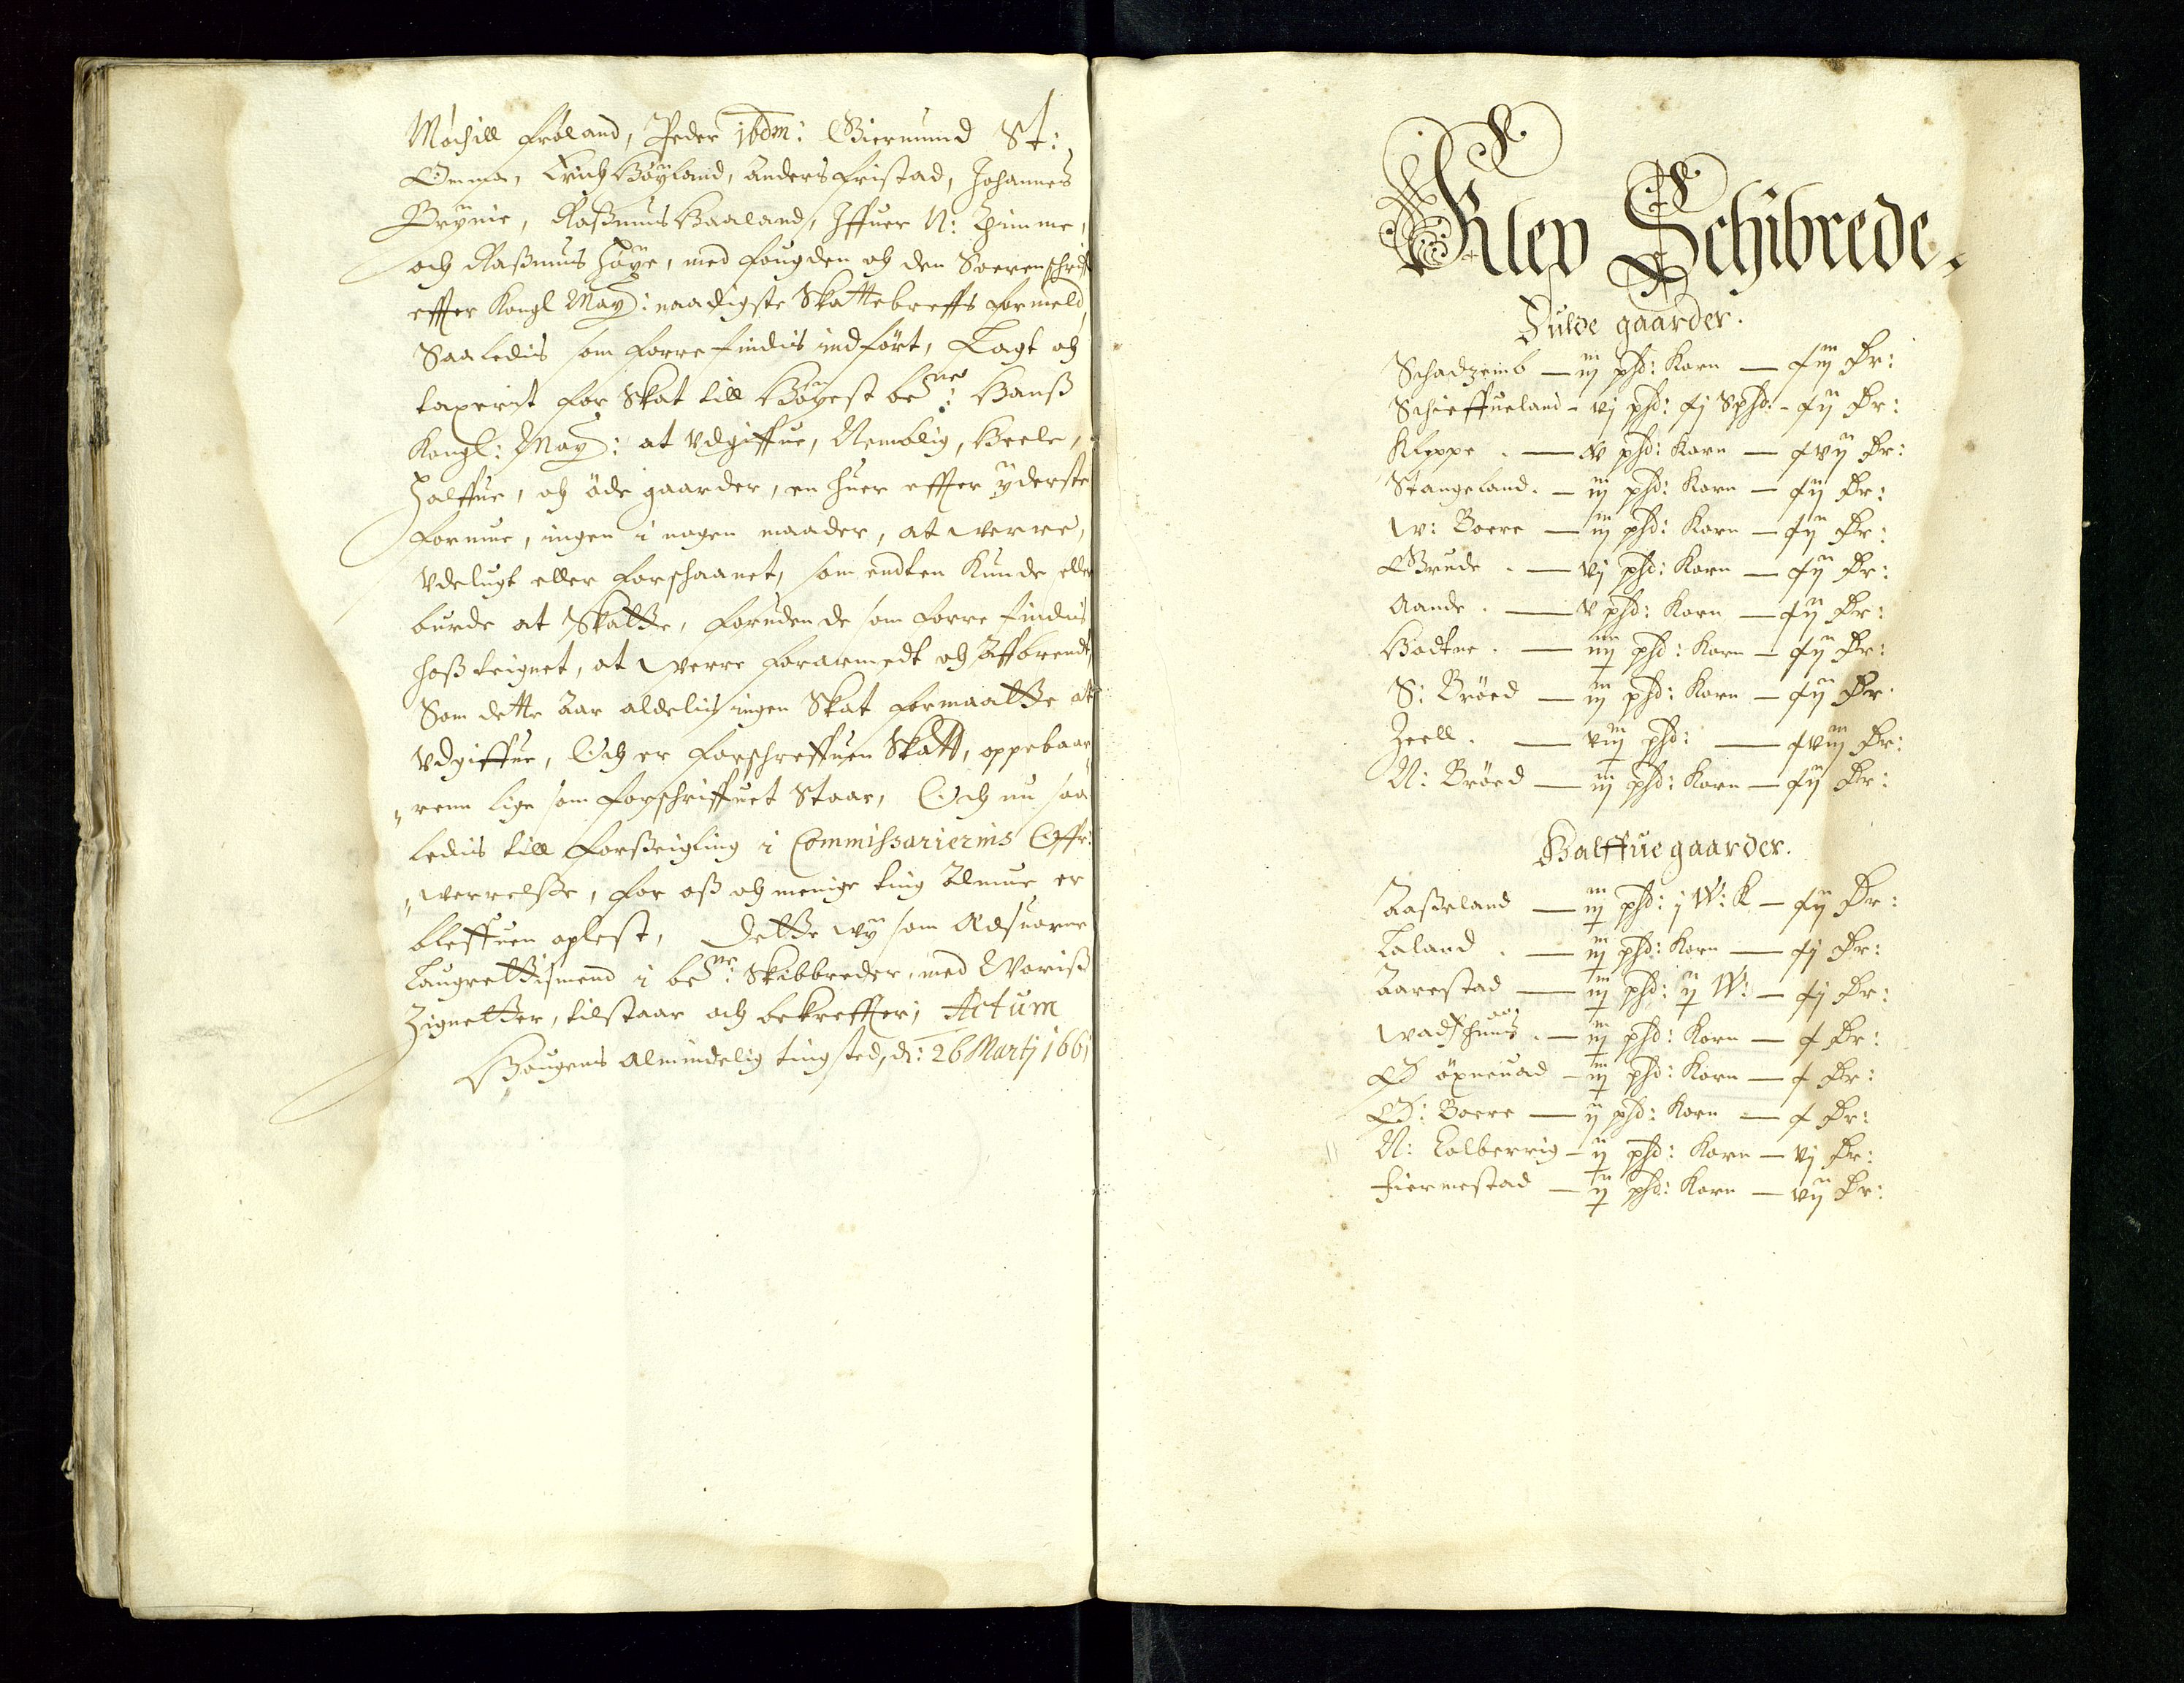 Mochill Frøland, Peder ibdm: Giermund St:
Omma, Erich Høÿland, Anders Fristad, Johannes
Brÿnie, Raßmus Haaland, Iffuer N: Thimme,
och Raßmus Høÿe, med fougden och den Soerenschrif
effter Kongl May: naadigste Skattebreffs formeld,
Saaledis som forre findis indført, Lagt och
taxerit for Skat till Høÿest be:ne Hanß
Kongl: May: at vdgiffue, Nemblig, Heele,
Halffue, och øde gaarder, en huer effter ÿderste
formue, ingen i nogen maader, at werre,
vdelugt eller forschaanet, som endten kunde eller
burde at Skatte, foruden de som forre findis
hoß teignet, at werre forarmedt och Affbrendt,
Som dette Aar aldelis ingen Skat formaatte at
vdgiffue, Och er forschreffuen Skatt, oppebaar
renn lige som forschriffuet Staar, Och nu saa
ledis till forseigling i Commissariernis Offr:
werrelsse, for oß och menige ting Almue er
bleffuen oplest, Dette wÿ som Edsuorne
Laugrettismend i be:ne Skibbreder, med Woris
Zignetter, tilstaar och bekreffter, Actum
Hougens Almindelig tingsted, d: 26 Martj 1661
Klep Schibrede.
Fulde gaarder.
Schadzemb — iij phd: Korn — fiij Dr:
Schieffueland - vj phd: fj Sphd: - fij Dr:
Kleppe . — xv phd: Korn — fvij Dr:
Stangeland . — iij phd: Korn — fij Dr:
W: Boere — iij phd: Korn — fij Dr:
Grude . — vj phd: Korn — fij Dr:
Aande . — v phd: Korn — fij Dr:
Hodtne . — iiij phd: Korn — fij Dr:
S: Brøed — iij phd: Korn — fij Dr:
Zeell . — viij phd: — fviij Dr:
N: Brøed — iij phd: Korn — fij Dr:
Halffue gaarder.
Aaßeland — iij phd: j W: K — fij Dr:
Laland . — iij phd: Korn — fj Dr:
Aarestad — iij phd: ij W: — fj Dr:
Wadshuus . — iij phd: Korn — f Dr:
Ø øxneuad — iij phd: Korn — f Dr:
Ø: Boere — ij phd: Korn — f Dr:
N: Tolberrig — ij phd: Korn — vj Dr:
Fiermestad — ij phd: Korn — vij Dr: